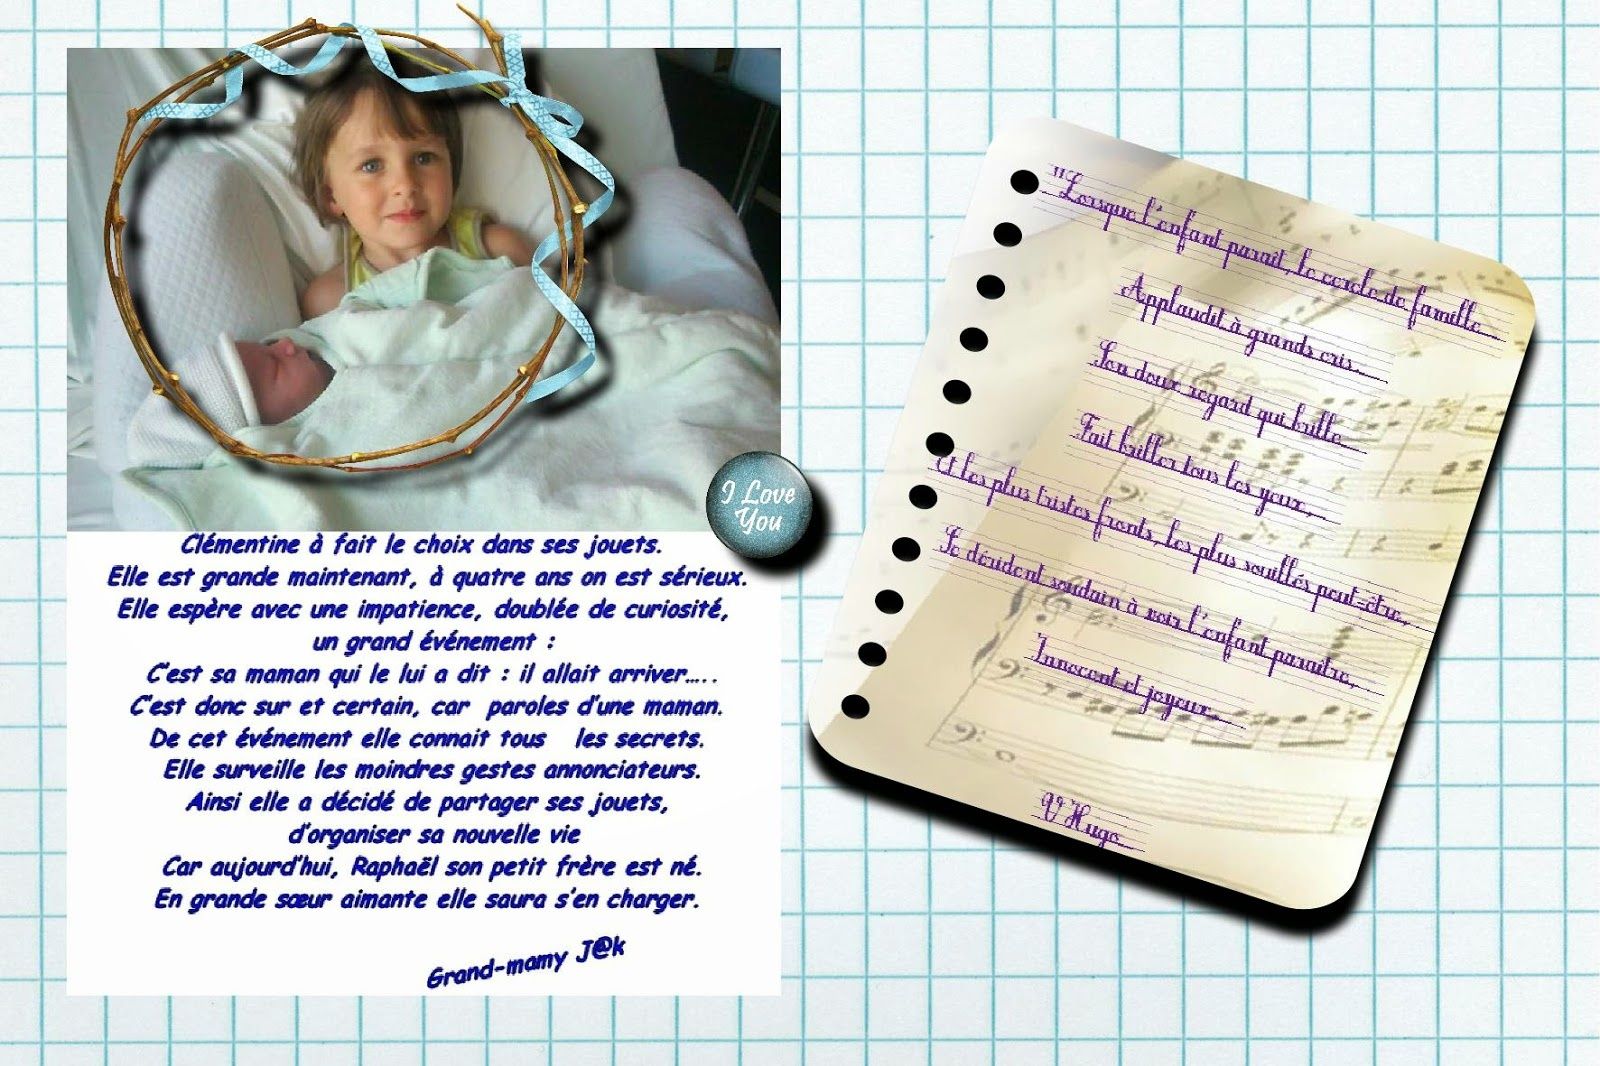 Clémentine à fait le choix dans ses jouets.
Elle est grande maintenant, à quatre ans on est sérieux.
Elle espère avec une impatience, doublée de curiosité,
un grand événement :
C'est sa maman qui le lui a dit : il allait arriver…..
C'est donc sur et certain, car paroles d'une maman.
De cet événement elle connait tous les secrets.
Elle surveille les moindres gestes annonciateurs.
Ainsi elle a décidé de partager ses jouets,
d'organiser sa nouvelle vie
Car aujourd'hui, Raphaël son petit frère est né.
En grande sœur aimante elle saura s'en charger.
Grand-mamy J@k
I Love
You
"Lorsque l'enfant parait, le cercle de famille
Applaudit à grands cris.
Son doux regard qui brille
Fait briller tous les yeux,
Et les plus tristes fronts, les plus souillés peut-être,
Se dérident soudain à voir l'enfant paraitre,
Innocent et joyeux.
V Hugo